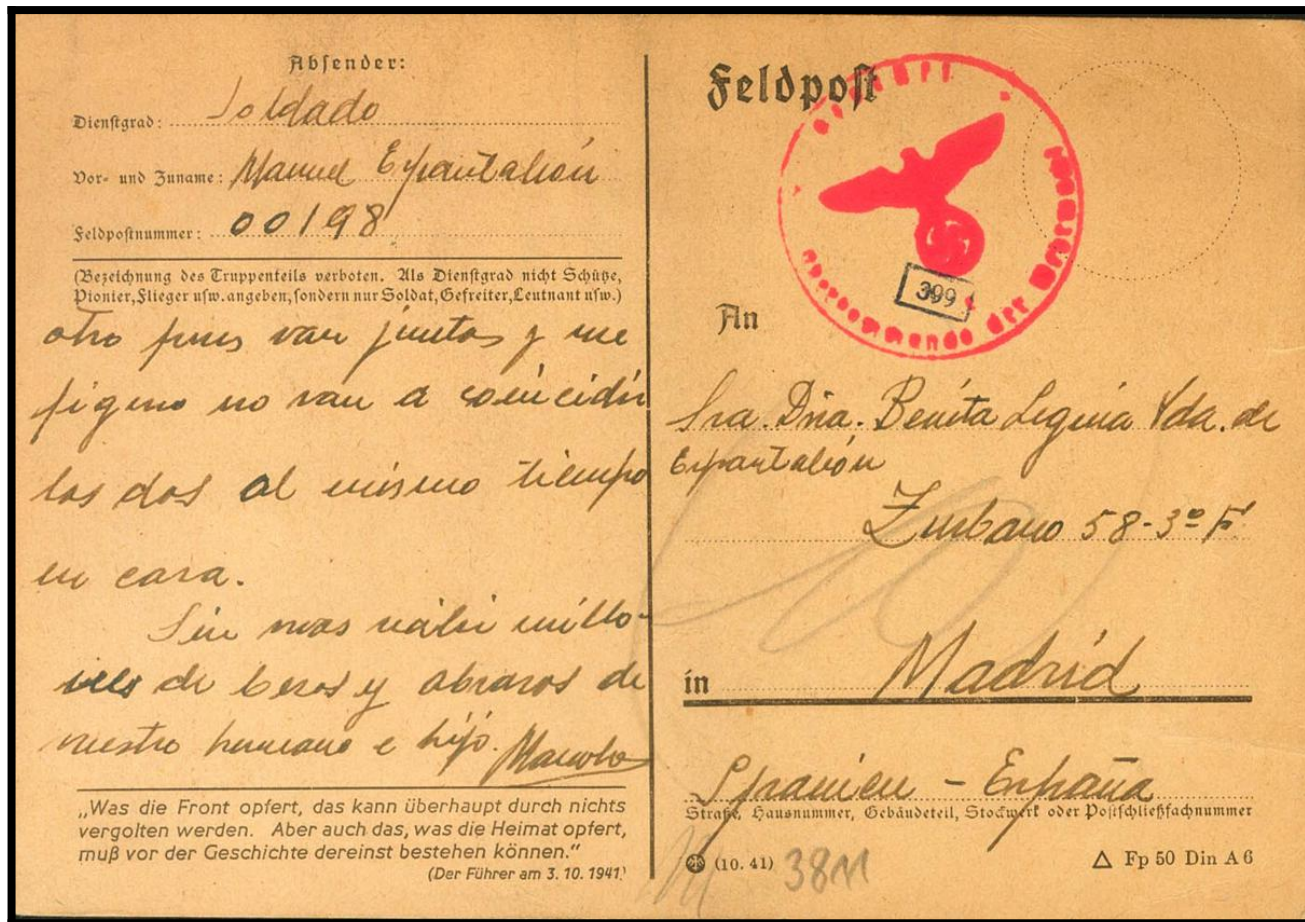 Absender:
Dienstgrad: Soldado
Vor- und Zuname: Manuel Espantaleón
Feldpostnummer: 00198
(Bezeichnung des Truppenteils verboten. Als Dienstgrad nicht Schütze,
Pionier, Flieger usw. angeben, sondern nur Soldat, Gefreiter, Leutnant usw.)
otro pues van juntos y me
figuro no van a coincidir
los dos al mismo tiempo
en casa.
Sin mas millo-
nes de besos y abrazos de
vuestro hermano e hijo. Manolo
„Was die Front opfert, das kann überhaupt durch nichts
vergolten werden. Aber auch das, was die Heimat opfert,
muß vor der Geschichte dereinst bestehen können.“
(Der Führer am 3. 10. 1941)
Feldpost
Oberkommando der Wehrmacht
399
An
Sra. Dña. Benita Leguia Vda. de
Espantaleón
Zurbano 58-3º
in Madrid
Spanien - España
Straße, Hausnummer, Gebäudeteil, Stockwerk oder Postschließfachnummer
(10. 41) 38
△ Fp 50 Din A 6